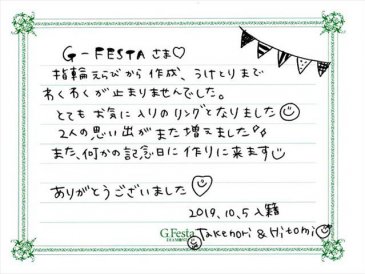 G-FESTAさま♡
指輪えらびから作成、うけとりまで
わくわくが止まりませんでした。
とてもお気に入りのリングとなりました
2人の思い出がまた増えました
また、何かの記念日に作りに来ます
ありがとうございました
2019.10.5入籍
G.Festa
Takenori & Hitomi